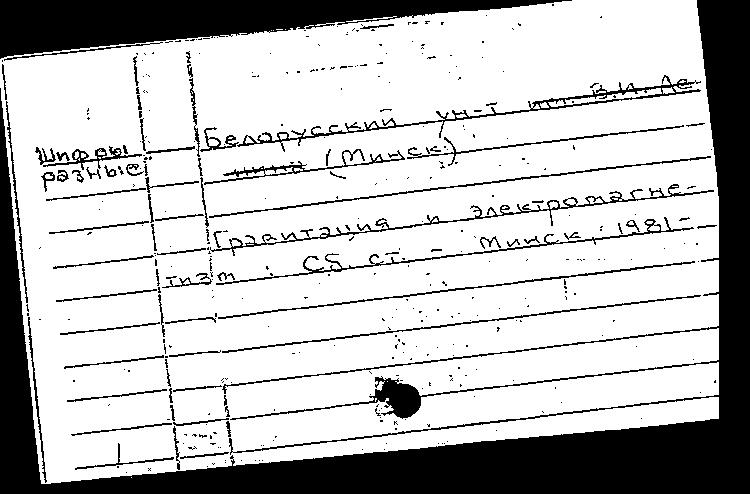 Шифры
разные
Белорусский ун-т им. В.И. Ле
нина (Минск)
Гравитация и электромагне-
тизм : Сб. ст. - Минск, 1981-